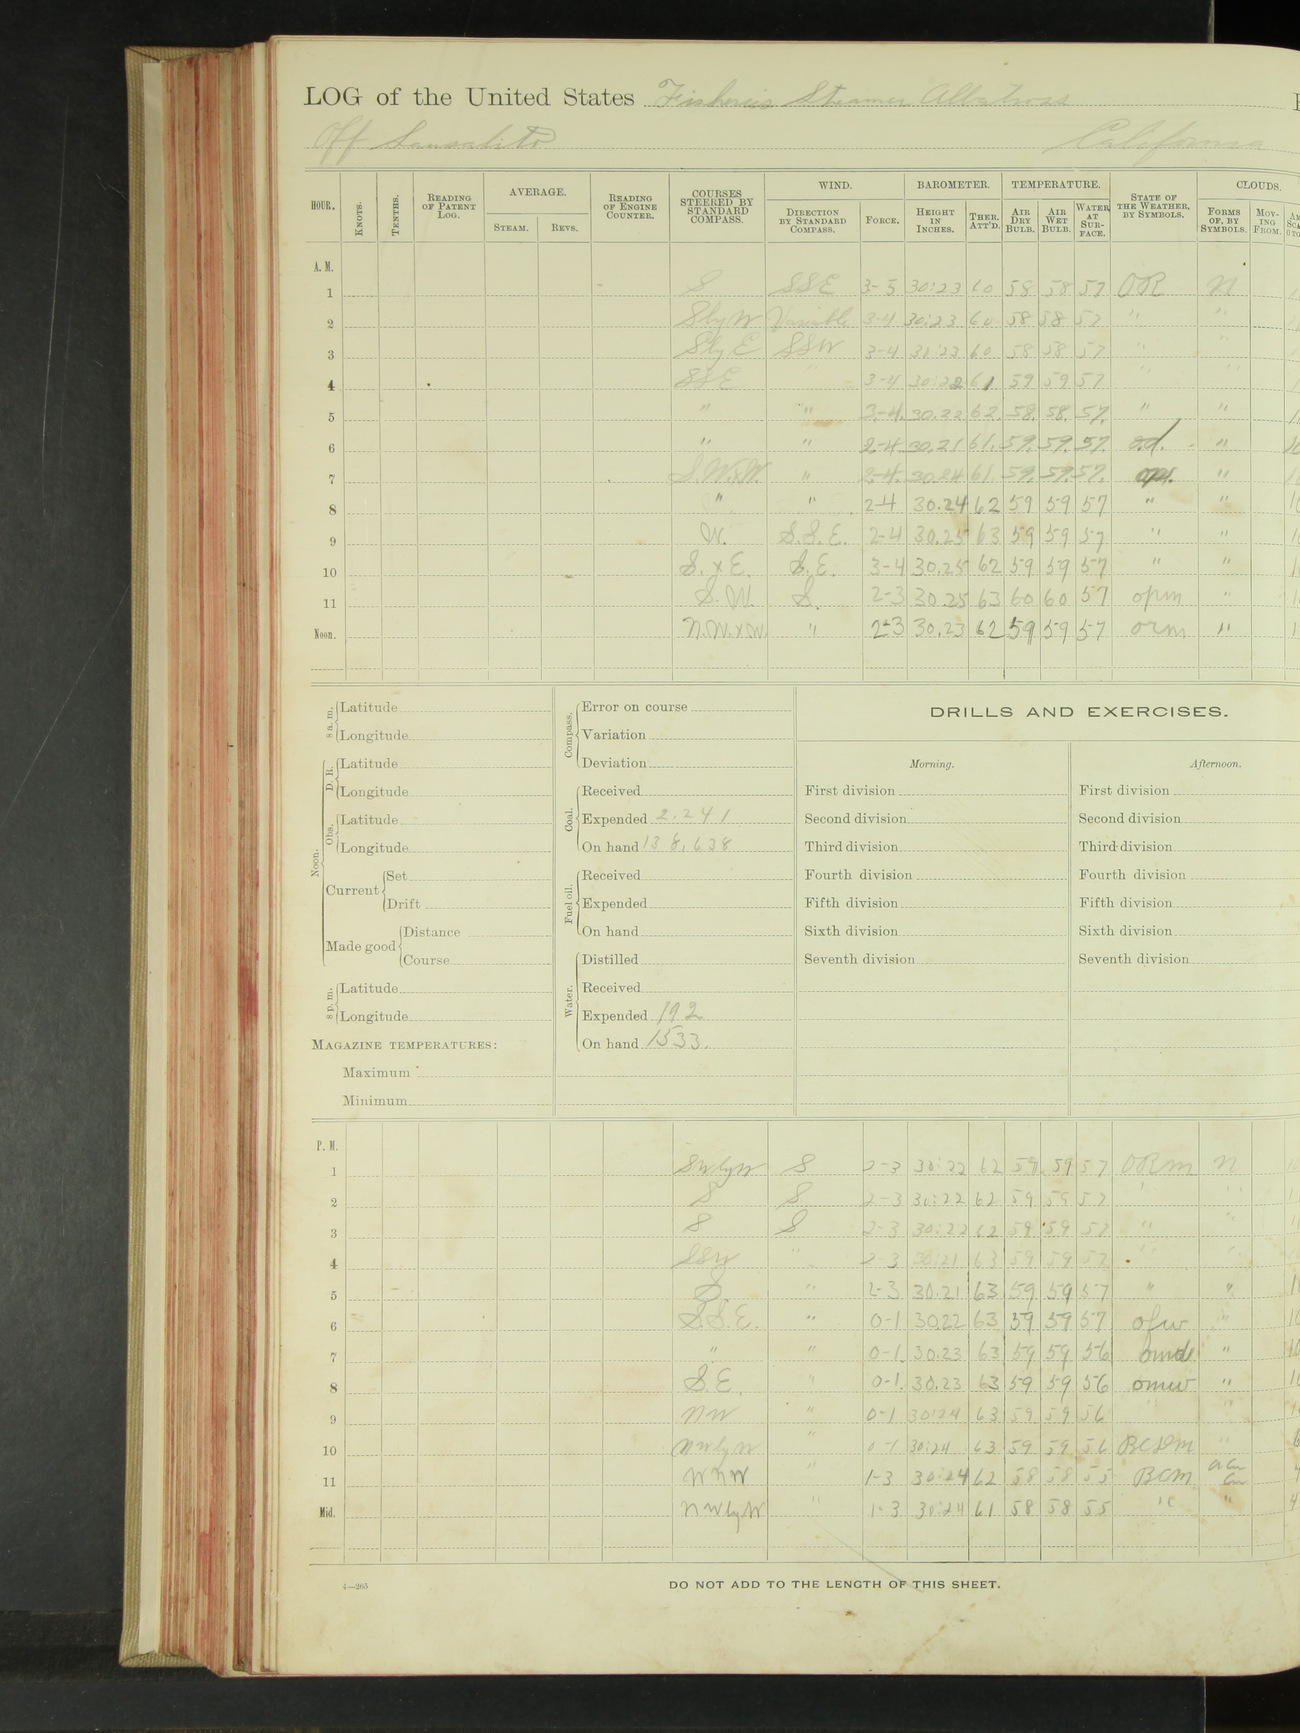 LOG of the United States Fisheries Steamer Albatross
Off Sausalito California
HOUR. KNOTS. TENTHS. READING OF PATENT LOG. AVERAGE. STEAM. REVS. READING OF ENGINE COUNTER. COURSES STEERED BY STANDARD COMPASS. WIND. DIRECTION BY STANDARD COMPASS. FORCE. BAROMETER. HEIGHT IN INCHES. THER. ATT'D. TEMPERATURE. AIR DRY BULB. AIR WET BULB. WATER AT SURFACE. STATE OF THE WEATHER, BY SYMBOLS. CLOUDS. FORMS OF, BY SYMBOLS. MOVING FROM.
A. M.
1 S SSE 3-5 30:23 60 58 58 57 OR N
2 SbyW Variable 3-4 30:23 60 58 58 57 " "
3 SbyE SSW 3-4 30:23 60 58 58 57 " "
4 SSE " 3-4 30:22 61 59 59 57 " "
5 " " 3-4. 30.22 62. 58. 58. 57. " "
6 " " 2-4 30.21 61. 59. 59. 57. o.d. "
7 S.W.xW. " 2-4. 30.24 61. 59. 59. 57. opr. "
8 " " 2-4 30.24 62 59 59 57 " "
9 W. S.S.E. 2-4 30.25 63 59 59 57 " "
10 S.xE. S.E. 3-4 30.25 62 59 59 57 " "
11 S.W. S. 2-3 30.25 63 60 60 57 opm "
Noon. N.W.xW. " 2-3 30.23 62 59 59 57 orm "
DRILLS AND EXERCISES.
Morning. Afternoon.
8 a. m. Latitude
Longitude
Noon. D. R. Latitude
Longitude
Obs. Latitude
Longitude
Current Set
Drift
Made good Distance
Course
8 p. m. Latitude
Longitude
MAGAZINE TEMPERATURES:
Maximum
Minimum
Compass. Error on course
Variation
Deviation
Coal. Received
Expended 2,241
On hand 138,638
Fuel oil. Received
Expended
On hand
Water. Distilled
Received
Expended 192
On hand 1533.
First division First division
Second division Second division
Third division Third division
Fourth division Fourth division
Fifth division Fifth division
Sixth division Sixth division
Seventh division Seventh division
P. M.
1 SWbyW S 2-3 30:22 62 59 59 57 ORm N
2 S S 2-3 30:22 62 59 59 57 " "
3 S S 2-3 30:22 62 59 59 57 " "
4 SSW " 2-3 30:21 63 59 59 57 " "
5 S " 2-3 30.21 63 59 59 57 " "
6 S.S.E. " 0-1 30.22 63 59 59 57 ofw "
7 " " 0-1 30.23 63 59 59 56 omd "
8 S.E. " 0-1 30.23 63 59 59 56 omw "
9 NW " 0-1 30:24 63 59 59 56 " "
10 NWbyW " 0-1 30:24 63 59 59 56 "
11 WNW " 1-3 30:24 62 58 58 55 BCM
Mid. NWbyW " 1-3 30:24 61 58 58 55 " "
4—265
DO NOT ADD TO THE LENGTH OF THIS SHEET.